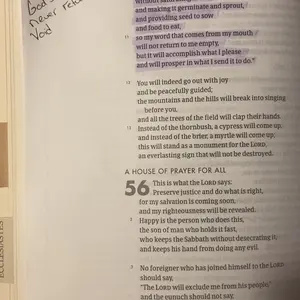 God's
never retu
Void
without satu
and making it germinate and sprout,
and providing seed to sow
and food to eat,
11 so my word that comes from my mouth
will not return to me empty,
but it will accomplish what I please
and will prosper in what I send it to do."
12 You will indeed go out with joy
and be peacefully guided;
the mountains and the hills will break into singing
before you,
and all the trees of the field will clap their hands.
13 Instead of the thornbush, a cypress will come up,
and instead of the brier, a myrtle will come up;
this will stand as a monument for the LORD,
an everlasting sign that will not be destroyed.
A HOUSE OF PRAYER FOR ALL
56 This is what the LORD says:
Preserve justice and do what is right,
for my salvation is coming soon,
and my righteousness will be revealed.
2 Happy is the person who does this,
the son of man who holds it fast,
who keeps the Sabbath without desecrating it,
and keeps his hand from doing any evil.
3 No foreigner who has joined himself to the LORD
should say,
"The LORD will exclude me from his people,"
and the eunuch should not say,
ECCLESIASTES